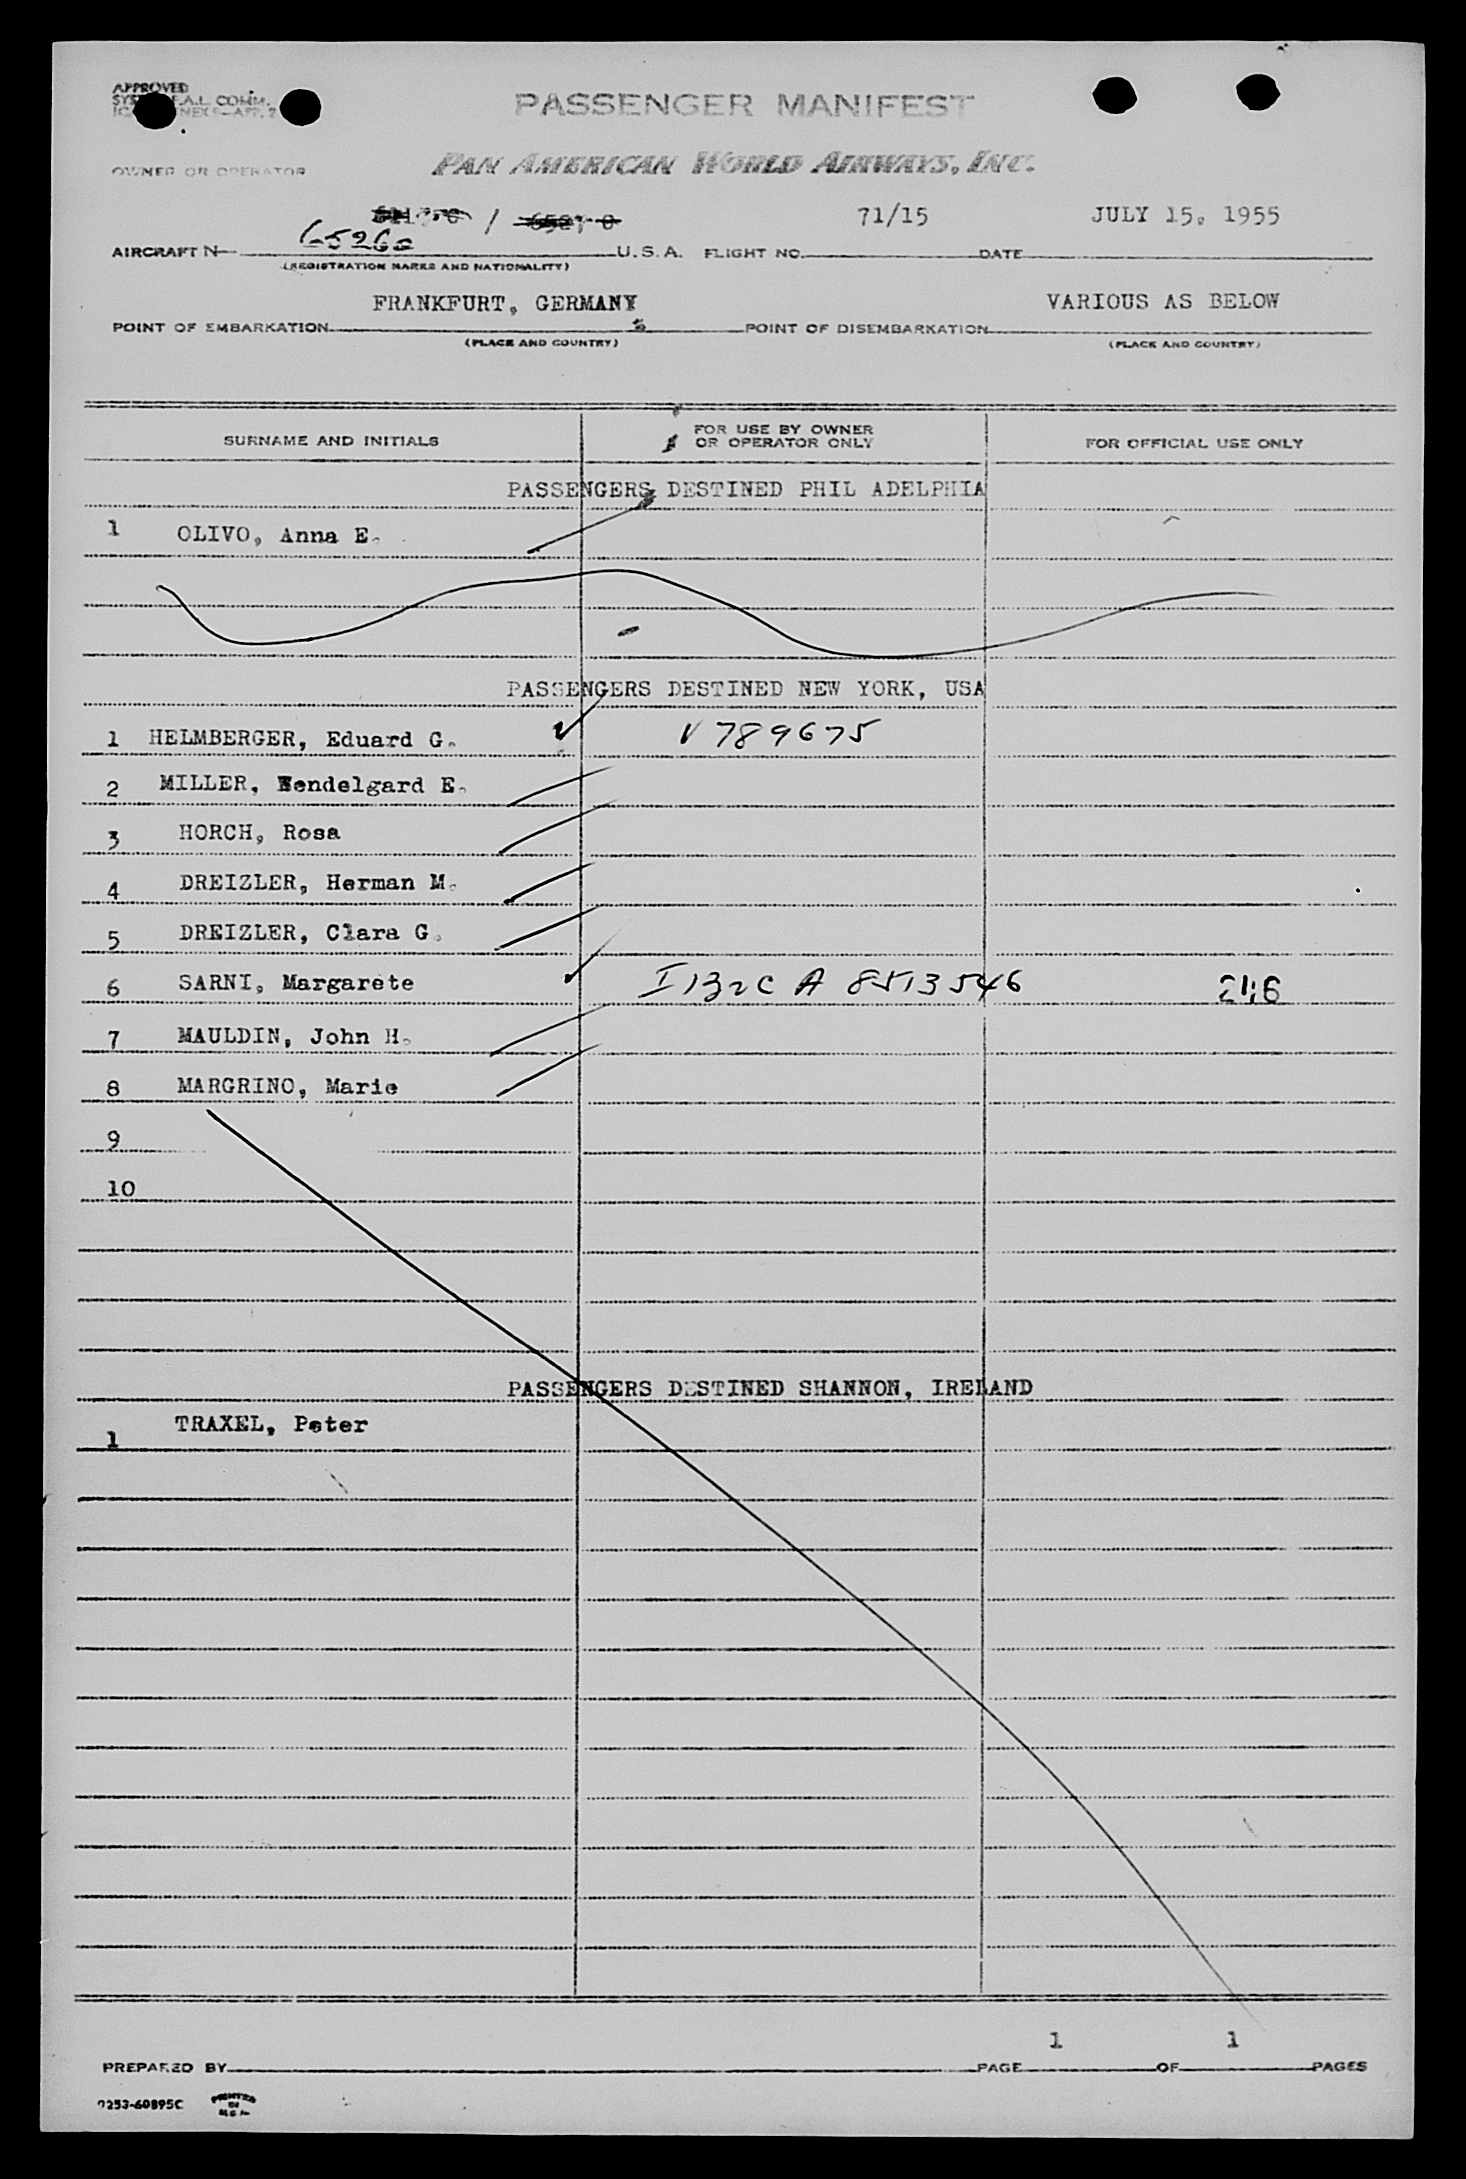 APPROVED
F.A.L. COMM.
PASSENGER MANIFEST
OWNER OR OPERATOR
PAN AMERICAN WORLD AIRWAYS, INC.
/ 71/15 JULY 15, 1955
AIRCRAFT N U.S.A. FLIGHT NO. DATE
(REGISTRATION MARKS AND NATIONALITY)
FRANKFURT, GERMANY VARIOUS AS BELOW
POINT OF EMBARKATION POINT OF DISEMBARKATION
(PLACE AND COUNTRY) (PLACE AND COUNTRY)
SURNAME AND INITIALS FOR USE BY OWNER OR OPERATOR ONLY FOR OFFICIAL USE ONLY
PASSENGERS DESTINED PHIL ADELPHIA
1 OLIVO, Anna E.
PASSENGERS DESTINED NEW YORK, USA
1 HELMBERGER, Eduard G. V 789675
2 MILLER, Wendelgard E.
3 HORCH, Rosa
4 DREIZLER, Herman M.
5 DREIZLER, Clara G.
6 SARNI, Margarete I 132c A 8513546 246
7 MAULDIN, John H.
8 MARGRINO, Marie
9
10
PASSENGERS DESTINED SHANNON, IRELAND
1 TRAXEL, Peter
1 1
PREPARED BY PAGE OF PAGES
7253-60895C PRINTED IN U.S.A.